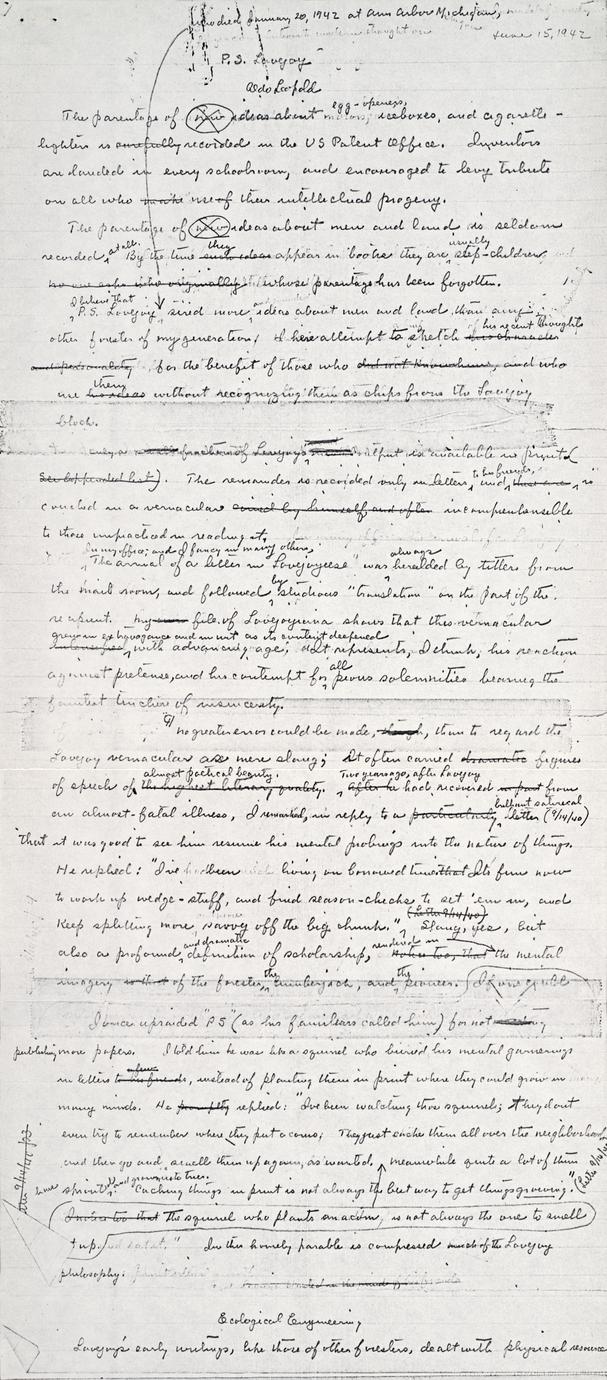 who died January 20, 1942 at Ann Arbor Michigan,
June 15, 1942
P.S. Lovejoy
Aldo Leopold
egg-openers,
The parentage of new ideas about iceboxes, and cigarette-
lighters is carefully recorded in the US Patent Office. Inventors
are lauded in every schoolroom, and encouraged to levy tribute
on all who make use of their intellectual progeny.
The parentage of new ideas about men and land is seldom
at all. they usually
recorded. By the time such ideas appear in books they are step-children,
no one asks who originally whose parentage has been forgotten.
I believe that
P.S. Lovejoy sired more ideas about men and land than any
his recent thoughts
other forester of my generation; I here attempt to sketch his character
and personality for the benefit of those who did not know him, and who
them
use his ideas without recognizing them as chips from the Lovejoy
block.
fraction of Lovejoy's output is available in print (
See appended list). The remainder is recorded only in letters and
to his friends, is
couched in a vernacular coined by himself and often incomprehensible
to those unpracticed in reading it.
In my office, and I fancy in many others, always
The arrival of a letter in "Lovejoyese" was heralded by titters from
by
the mail room, and followed studious "translation" on the part of the
recipient. My own file of Lovejoyiana shows that this vernacular
grew in extravagance and in wit as its content deepened
intensified with advancing age; it represents, I think, his reaction
all
against pretense, and his contempt for pious solemnities bearing the
faintest tincture of insincerity.
no greater error could be made, though, than to regard the
Lovejoy vernacular as mere slang; It often carried dramatic figures
almost poetical beauty. Two years ago, after Lovejoy
of speech of the highest literary quality. After he had recovered in part from
brilliant satirical
an almost-fatal illness, I remarked, in reply to a particularly letter (9/14/40)
that it was good to see him resume his mental probings into the nature of things.
He replied: "I've been living on borrowed time that It's fun now
to work up wedge-stuff, and find season-checks to set 'em in, and
(letter 9/14/40)
Keep splitting more savvy off the big chunk." Slang, yes, but
and dramatic rendered in
also a profound definition of scholarship, Notice too, that the mental
the the
imagery is that of the forester, lumberjack, and pioneer. If one could
I once upraided "PS" (as his familiars called him) for not
publishing more papers. I told him he was like a squirrel who buried his mental garnerings
a few
in letters to his friends, instead of planting them in print where they could grow in
many minds. He promptly replied: "I've been watching those squirrels; They dont
even try to remember where they put acorns; They just cache them all over the neighborhood,
and then go and smell them up again, as wanted. meanwhile quite a lot of them
have and grown into trees.
sprouted Caching things in print is not always the best way to get things growing."
I notice too that the squirrel who plants an acorn, is not always the one to smell
it up. and eat it." In this homely parable is compressed much of the Lovejoy
philosophy:
Ecological Engineering
Lovejoy's early writings, like those of other foresters, dealt with physical resource